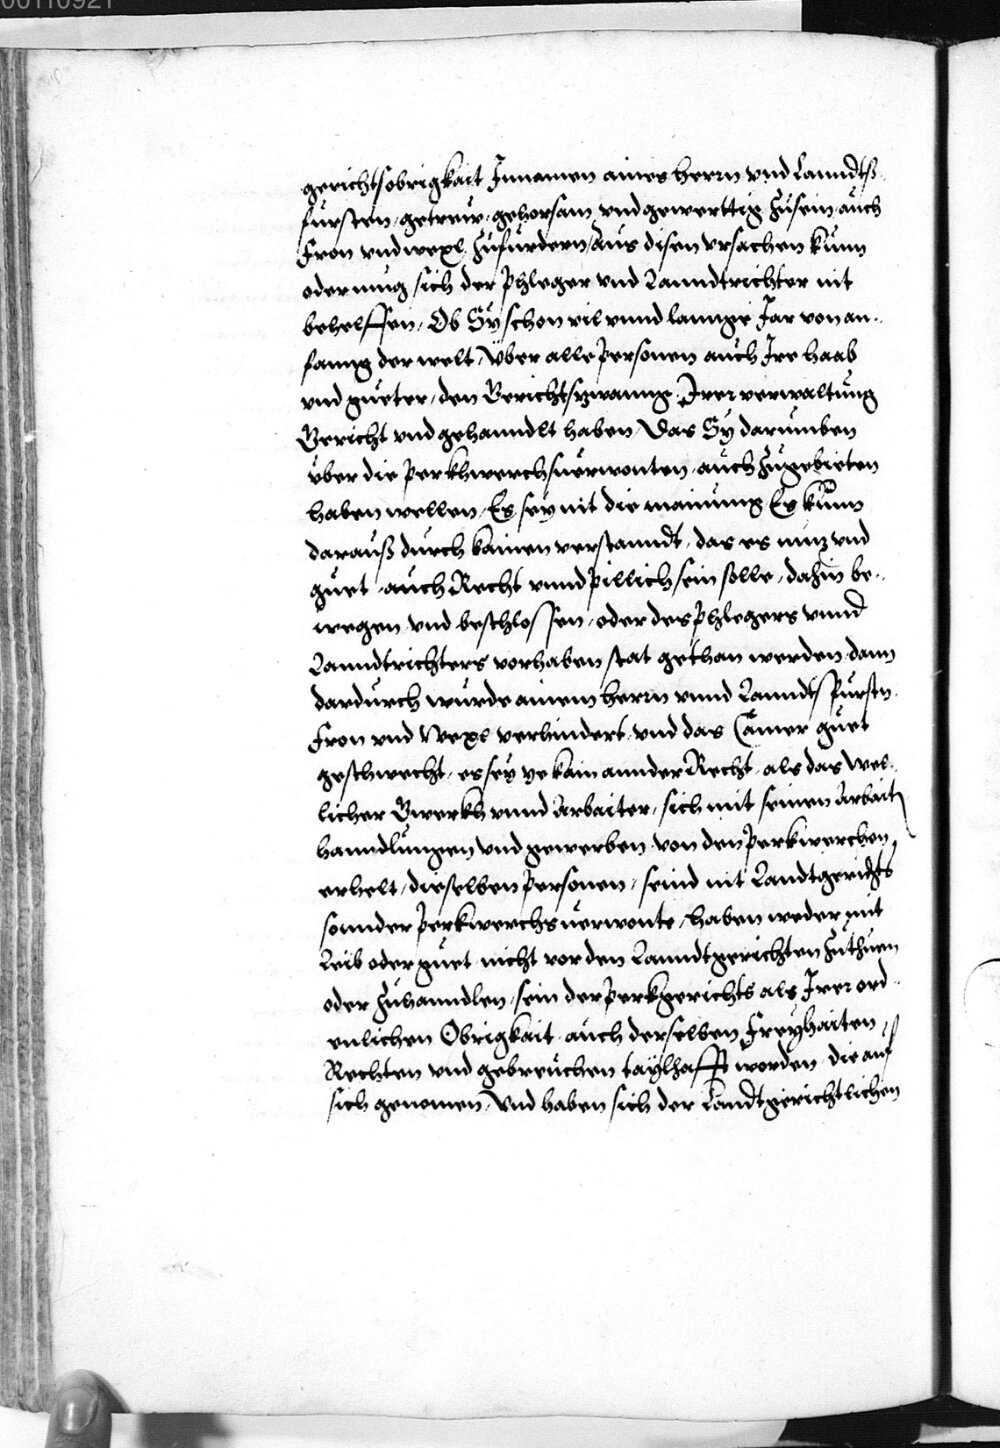 00110921
gerichtsobrigkait Innamen aines herrn vnd Lanndtß-
fürsten, getrew, gehorsam, vnd gewerttig Zusein, auch
Fron vnd wexl Zufürdern, Aus disen vrsachen kunn
oder mug sich der Phleger vnd Lanndtrichter nit
behelffen, Ob Sÿ schon vil vnnd lannge Jar von an-
fanng der welt, Vber alle Personen auch Ire haab
vnd güeter, den Gerichtszwanng Irer verwaltung
Gericht vnd gehanndlt haben, Das Sy darumben
vber die Perkhwerchsuerwonten, auch Zugebieten
haben wellen, Es seÿ nit die mainung, Es kunn
darauß durch kainen verstanndt, das es nuz vnd
guet, auch Recht vnnd pillich sein solle, dahin be-
wegen vnd beschlossen, oder des Phlegers vnnd
Lanndtrichters vorhaben stat gethan werden, dann
dardurch wurde ainem herrn vnnd Lanndtsfürsten
Fron vnd Wexl verhindert, vnd das Camer guet
geschwecht, es seÿ ye kain annder Recht, als das wel-
licher Gwerkh vnnd Arbaiter, sich mit seinen Arbait
hanndlungen vnd gewerben von den Perkwerchen
erhelt, dieselben Personen, seind nit Landtgerichts
sonnder Perkwerchsuerwonte, haben weder mit
Leib oder guet nicht vor den Lanndtgerichten Zuthuen
oder Zuhanndlen, sein der Perkgerichts als Irer ord-
enlichen Obrigkait, auch derselben Freyhaiten
Rechten vnd gebreuchen taÿlhafft worden, die auf
sich genomen, Vnd haben sich der Landtgerichtlichen